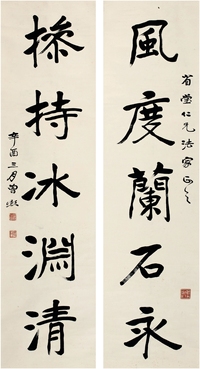 風度蘭石永
省堂仁兄法家正之
操持冰淵清
辛酉三月曾熙